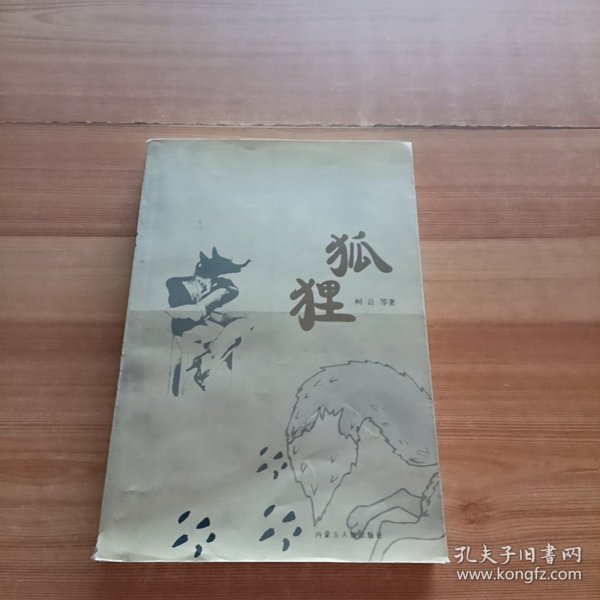 狐狸
柯云 等著
内蒙古人民出版社
孔夫子旧书网
www.kongfz.com